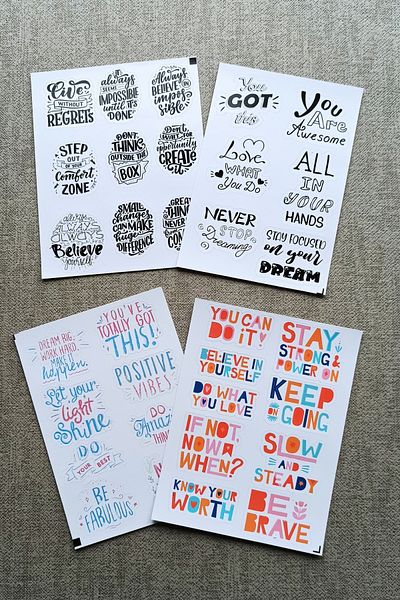 Live
WITHOUT
REGRETS
It
always
SEEMS
IMPOSSIBLE
UNTIL IT'S
"DONE"
Always
BELIEVE
IN
impos
SIBLE
STEP
OUT
OF YOUR
Comfort
ZONE
DON'T
THINK
OUTSIDE THE
BOX
Don't
WAIT FOR
opportunity
CREATE
it
Believe
yourself
SMALL
changes
CAN MAKE
huge
DIFFERENCE
GREAT
THIN
NEVER
You
GOT
this
You
Are
Awesome
Love
WHAT
You Do
ALL
IN
YOUR
HANDS
NEVER
STOP
Dreaming
STAY FOCUSED
on your
DREAM
DREAM BIG
WORK HARD
MAKE IT
happen.
YOU'VE
TOTALLY GOT
THIS!
Let your
light
Shine
POSITIVE
VIBES
DO
YOUR BEST
DO
Amazi
THIN
BE
FABULOUS
YOU CAN
DO IT
STAY
STRONG &
POWER ON
BELIEVE IN
YOURSELF
KEEP
ON
GOING
DO WHAT
YOU LOVE
IF NOT
NOW
WHEN?
SLOW
AND
STEADY
KNOW YOUR
WORTH
BE
BRAVE